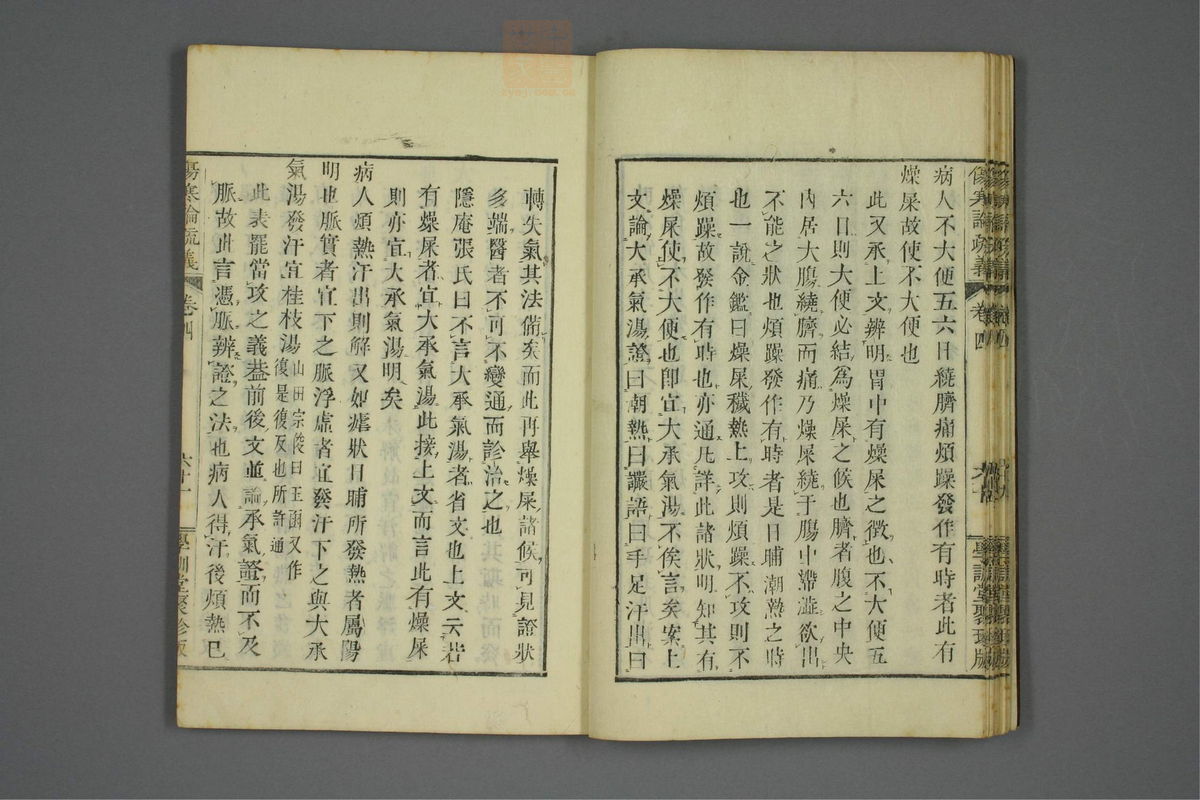 病人不大便五六日繞臍痛煩躁發作有時者此有
燥屎故使不大便也
此又承上文辨明胃中有燥屎之徵也不大便五
六日則大便必結爲燥屎之候也臍者腹之中央
內居大腸繞臍而痛乃燥屎繞于腸中滯澁欲出
不能之狀也煩躁發作有時者是日晡潮熱之時
也一說金鑑曰燥屎穢熱上攻則煩躁不攻則不
煩躁故發作有時也亦通凡詳此諸狀明知其有
燥屎使不大便也卽宜大承氣湯不俟言矣案上
文論大承氣湯證曰潮熱曰讝語曰手足汗出曰
轉失氣其法備矣而此再舉燥屎諸候可見證狀
多端醫者不可不變通而診治之也
隱庵張氏曰不言大承氣湯者省文也上文云若
有燥屎者宜大承氣湯此接上文而言此有燥屎
則亦宜大承氣湯明矣
病人煩熱汗出則解又如瘧狀日晡所發熱者屬陽
明也脈實者宜下之脈浮虛者宜發汗下之與大承
氣湯發汗宜桂枝湯山田宗俊曰玉函又作復是復反也所許通
此表罷當攻之義葢前後文並論承氣證而不及
脈故此言憑脈辨證之法也病人得汗後煩熱巳
傷寒論疏義
卷四
六十一
學訓堂聚珍版